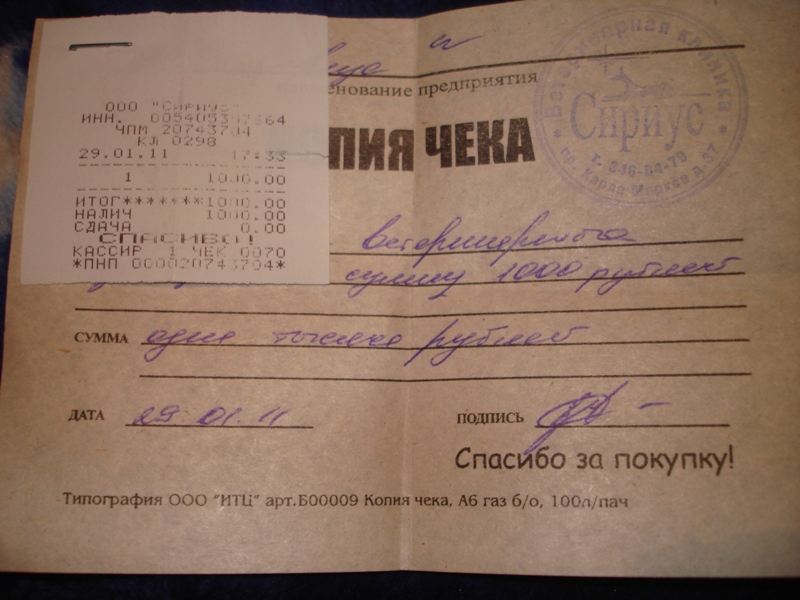 ООО "Сириус"
ИНН. 664
ЧПМ 20743704
КЛ 0298
29.01.11 17:33
1 1000.00
ИТОГ*******1000.00
НАЛИЧ 1000.00
СДАЧА 0.00
СПАСИБО!
КАССИР 1 ЧЕК 0070
*ПНП 000020743704*
енование предприятия
ПИЯ ЧЕКА
Ветеринарная клиника
Сириус
т. 346-84-79
пр. Карла Маркса д.37
сумму 1000 рублей
СУММА одна тысяча рублей
ДАТА 29.01.11
ПОДПИСЬ
Спасибо за покупку!
Типография ООО "ИТЦ" арт.Б00009 Копия чека, А6 газ б/о, 100л/пач